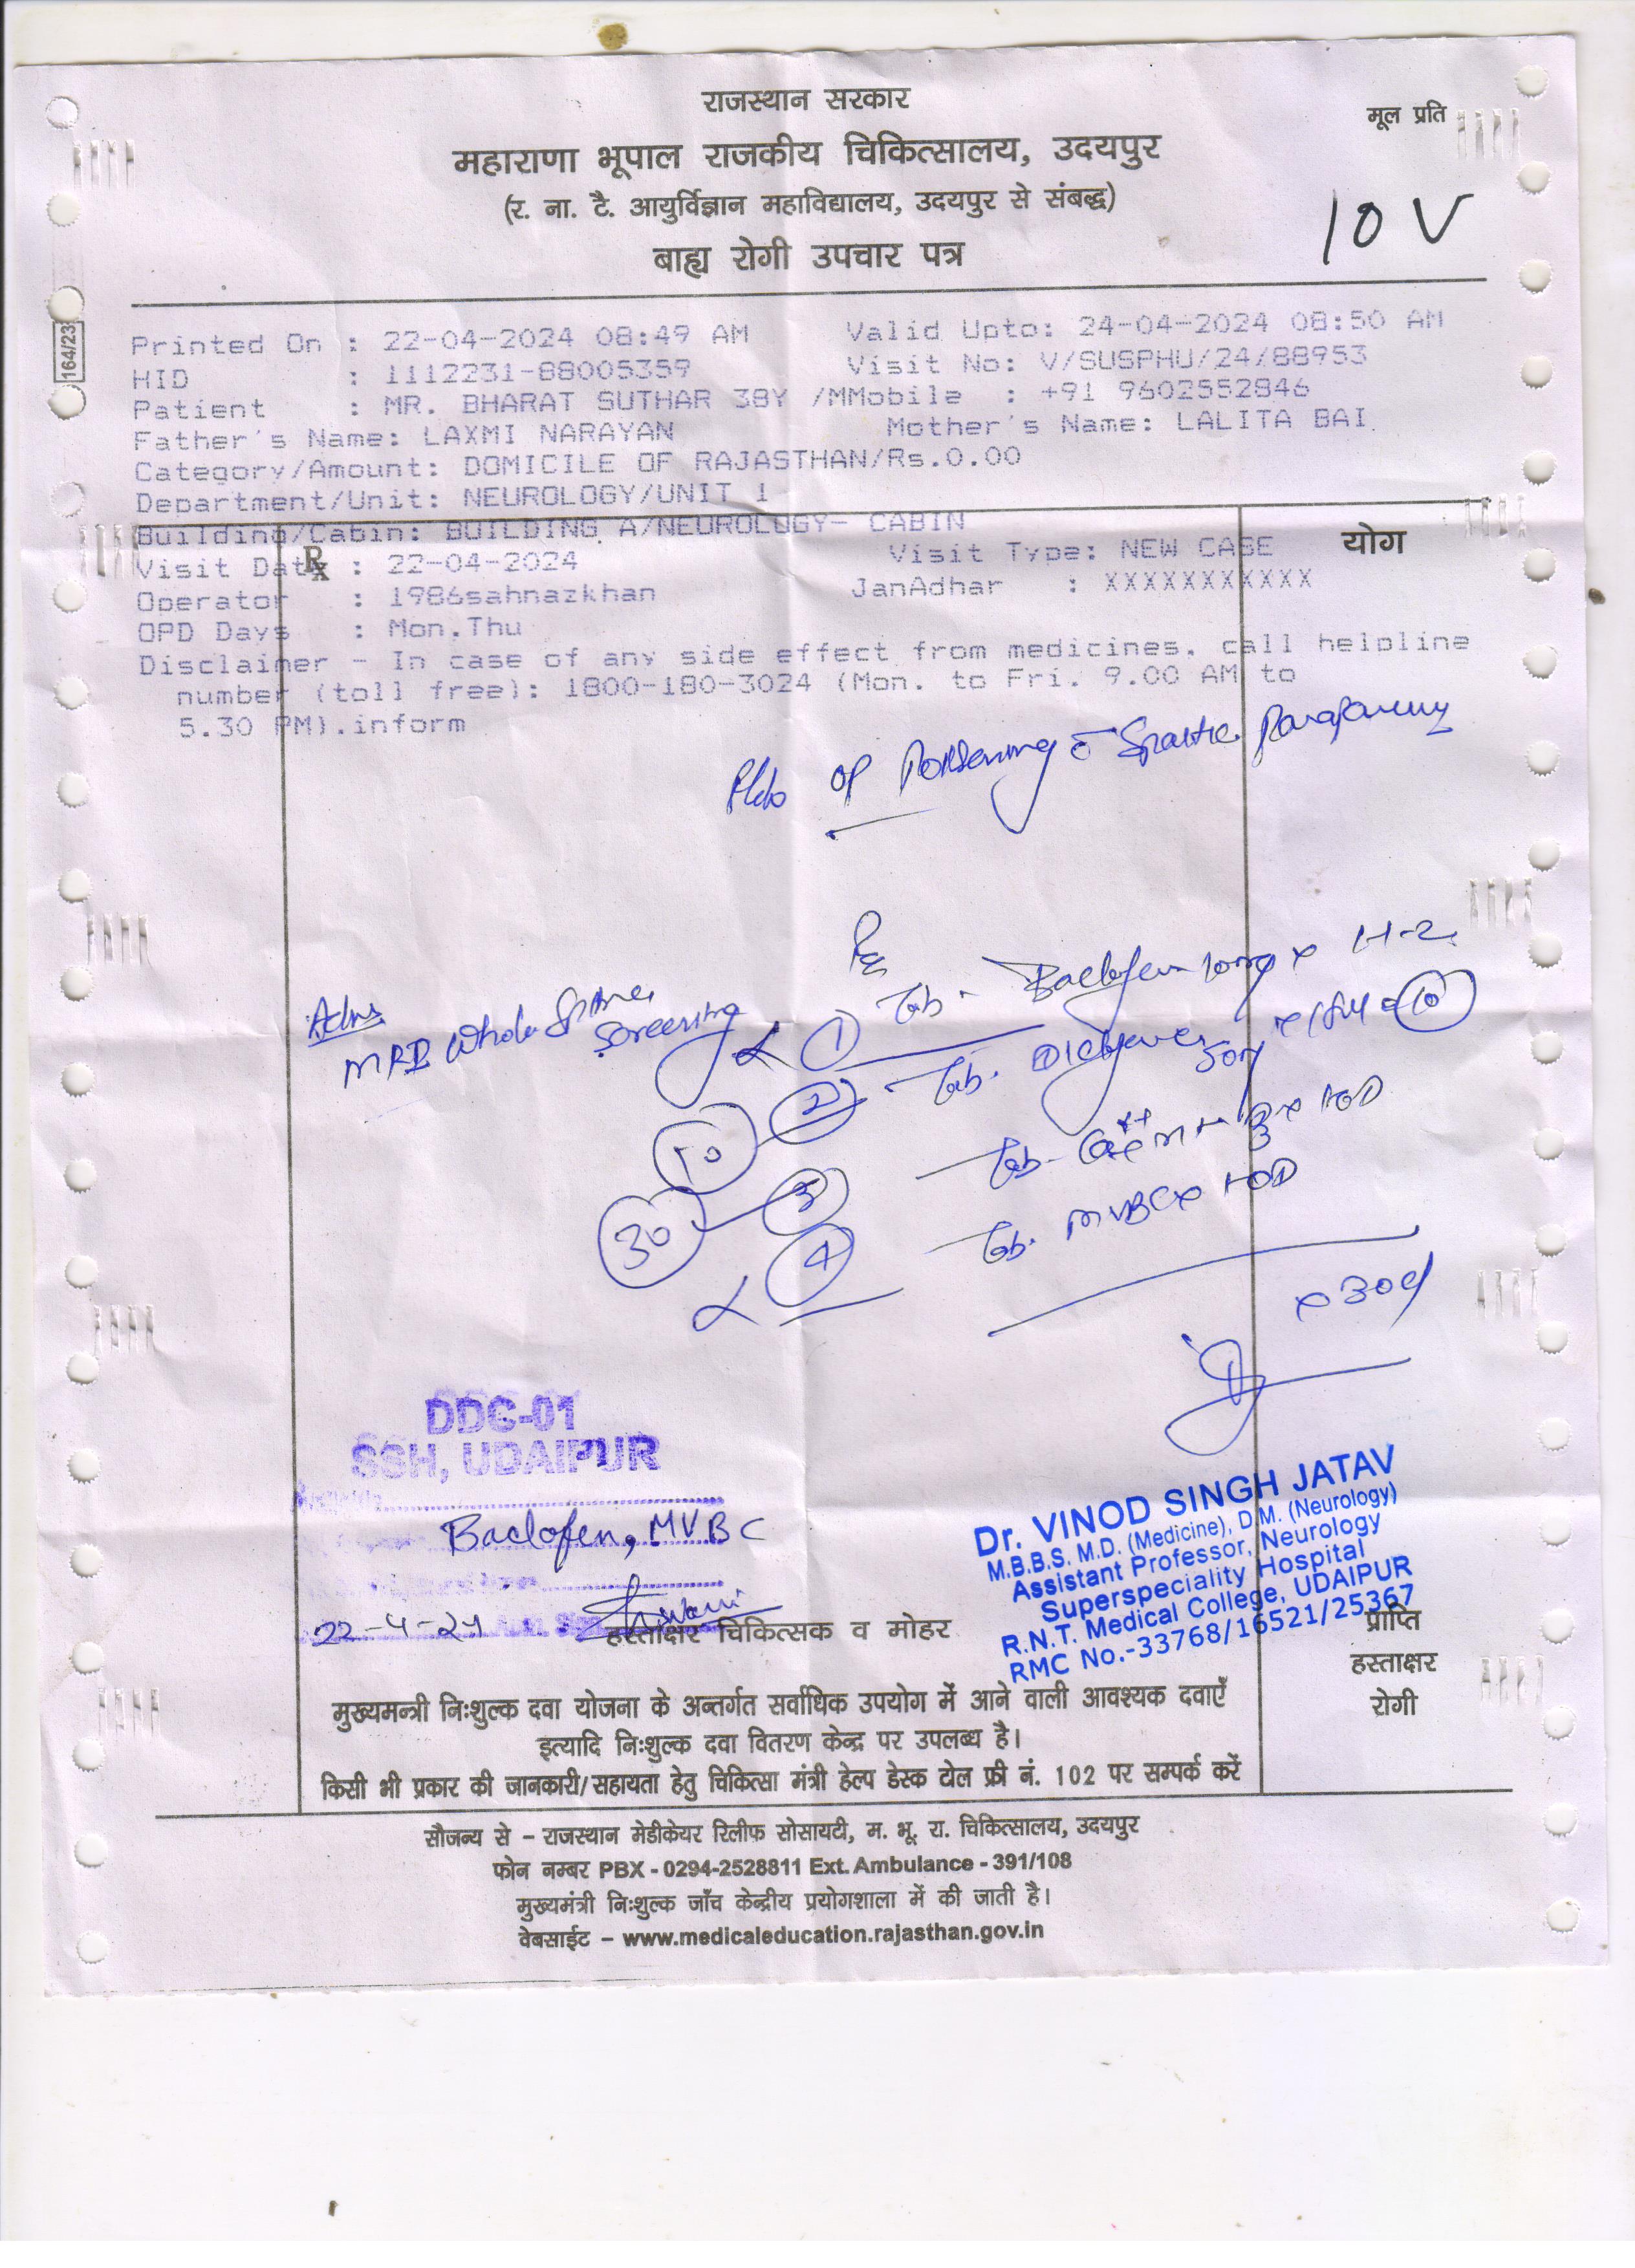 राजस्थान सरकार
मूल प्रति
महाराणा भूपाल राजकीय चिकित्सालय, उदयपुर
(र. ना. टै. आयुर्विज्ञान महाविद्यालय, उदयपुर से संबद्ध)
बाह्य रोगी उपचार पत्र
10 V
164/23
Printed On : 22-04-2024 08:49 AM Valid Upto: 24-04-2024 08:50 AM
HID : 1112231-88005359 Visit No: V/SUSPHU/24/88953
Patient : MR. BHARAT SUTHAR 38Y /MMobile : +91 9602552846
Father's Name: LAXMI NARAYAN Mother's Name: LALITA BAI
Category/Amount: DOMICILE OF RAJASTHAN/Rs.0.00
Department/Unit: NEUROLOGY/UNIT 1
Building/Cabin: BUILDING A/NEUROLOGY- CABIN
योग
Rx
Visit Date : 22-04-2024 Visit Type: NEW CASE
Operator : 1986sahnazkhan JanAdhar : XXXXXXXXXXX
OPD Days : Mon.Thu
Disclaimer - In case of any side effect from medicines, call helpline
number (toll free): 1800-180-3024 (Mon. to Fri. 9.00 AM to
5.30 PM).inform
of Spastic
Adv
MRI Whole Spine
Screening
① Tab. Baclofen 10mg x 1-1-2
② Tab. 50mg x 10
10
③ Tab. x 1OD
30
④ Tab. MVBC x 1OD
x 30d
DDC-01
SSH, UDAIPUR
Baclofen, MVBC
22-4-24
Dr. VINOD SINGH JATAV
M.B.B.S. M.D. (Medicine), D.M. (Neurology)
Assistant Professor, Neurology
Superspeciality Hospital
R.N.T. Medical College, UDAIPUR
RMC No.-33768/16521/25367
हस्ताक्षर चिकित्सक व मोहर
प्राप्ति
हस्ताक्षर
रोगी
मुख्यमन्त्री निःशुल्क दवा योजना के अन्तर्गत सर्वाधिक उपयोग में आने वाली आवश्यक दवाएँ
इत्यादि निःशुल्क दवा वितरण केन्द्र पर उपलब्ध है।
किसी भी प्रकार की जानकारी/सहायता हेतु चिकित्सा मंत्री हेल्प डेस्क टोल फ्री नं. 102 पर सम्पर्क करें
सौजन्य से - राजस्थान मेडीकेयर रिलीफ सोसायटी, म. भू. रा. चिकित्सालय, उदयपुर
फोन नम्बर PBX - 0294-2528811 Ext. Ambulance - 391/108
मुख्यमंत्री निःशुल्क जाँच केन्द्रीय प्रयोगशाला में की जाती है।
वेबसाईट - www.medicaleducation.rajasthan.gov.in